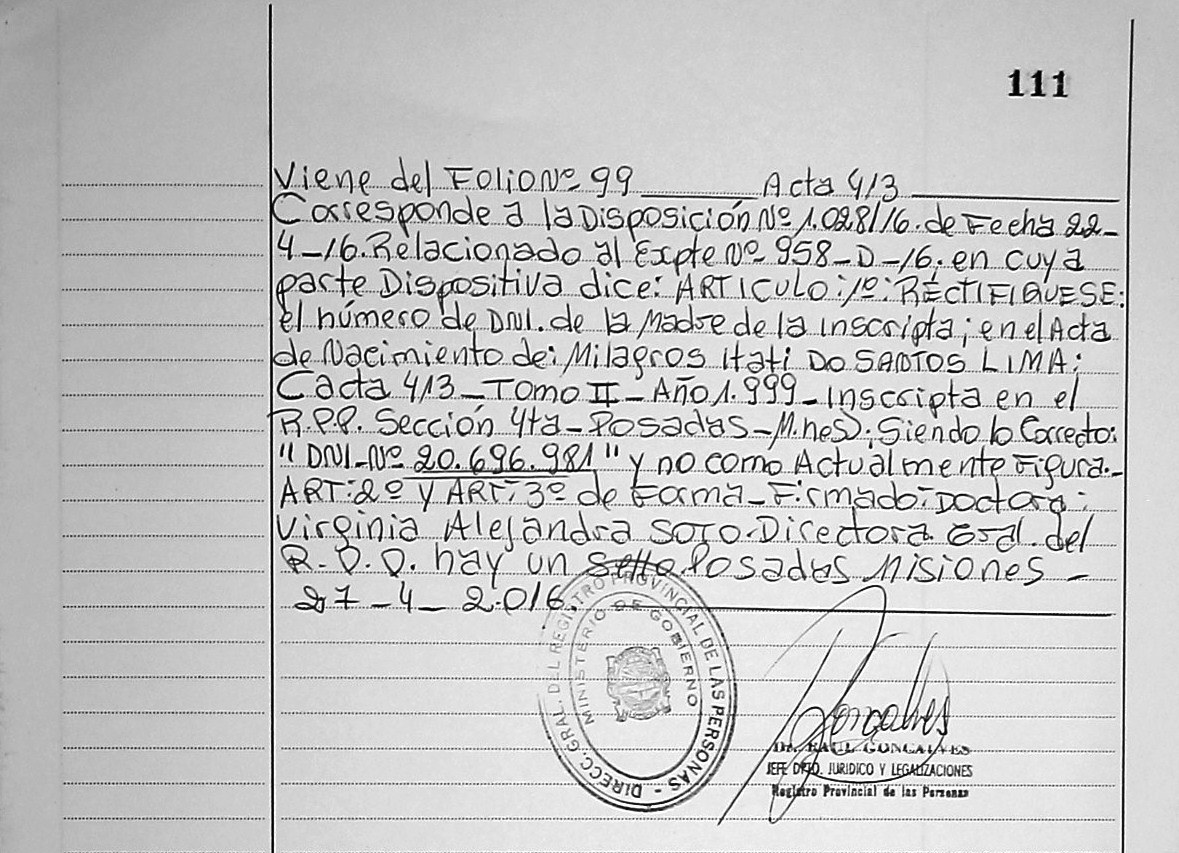 111
Viene del Folio Nº 99 Acta 413
Corresponde a la Disposición Nº 1.028/16. de Fecha 22-
4-16. Relacionado al Expte Nº 958-D-16; en cuya
parte Dispositiva dice: ARTICULO: 1º: RECTIFIQUESE:
el número de DNI. de la Madre de la inscripta; en el Acta
de Nacimiento de: Milagros Itati DO SANTOS LIMA;
Cacta 413-TOMO II-Año 1.999-Inscripta en el
R.P.P. Sección 4ta-Posadas-M.nes); Siendo lo Correcto:
"DNI-Nº 20.696.981" y no como Actualmente Figura.-
ART: 2º Y ART: 3º de Forma-Firmado: Doctora:
Virginia Alejandra SOTO-Directora Gral. del
R.P.P. hay un Sello. Posadas Misiones-
27-4-2.016.
DIRECC. GRAL. DEL REGISTRO PROVINCIAL DE LAS PERSONAS -
MINISTERIO DE GOBIERNO
Goncalves
Dr. RAUL GONCALVES
JEFE DPTO. JURIDICO Y LEGALIZACIONES
Registro Provincial de las Personas